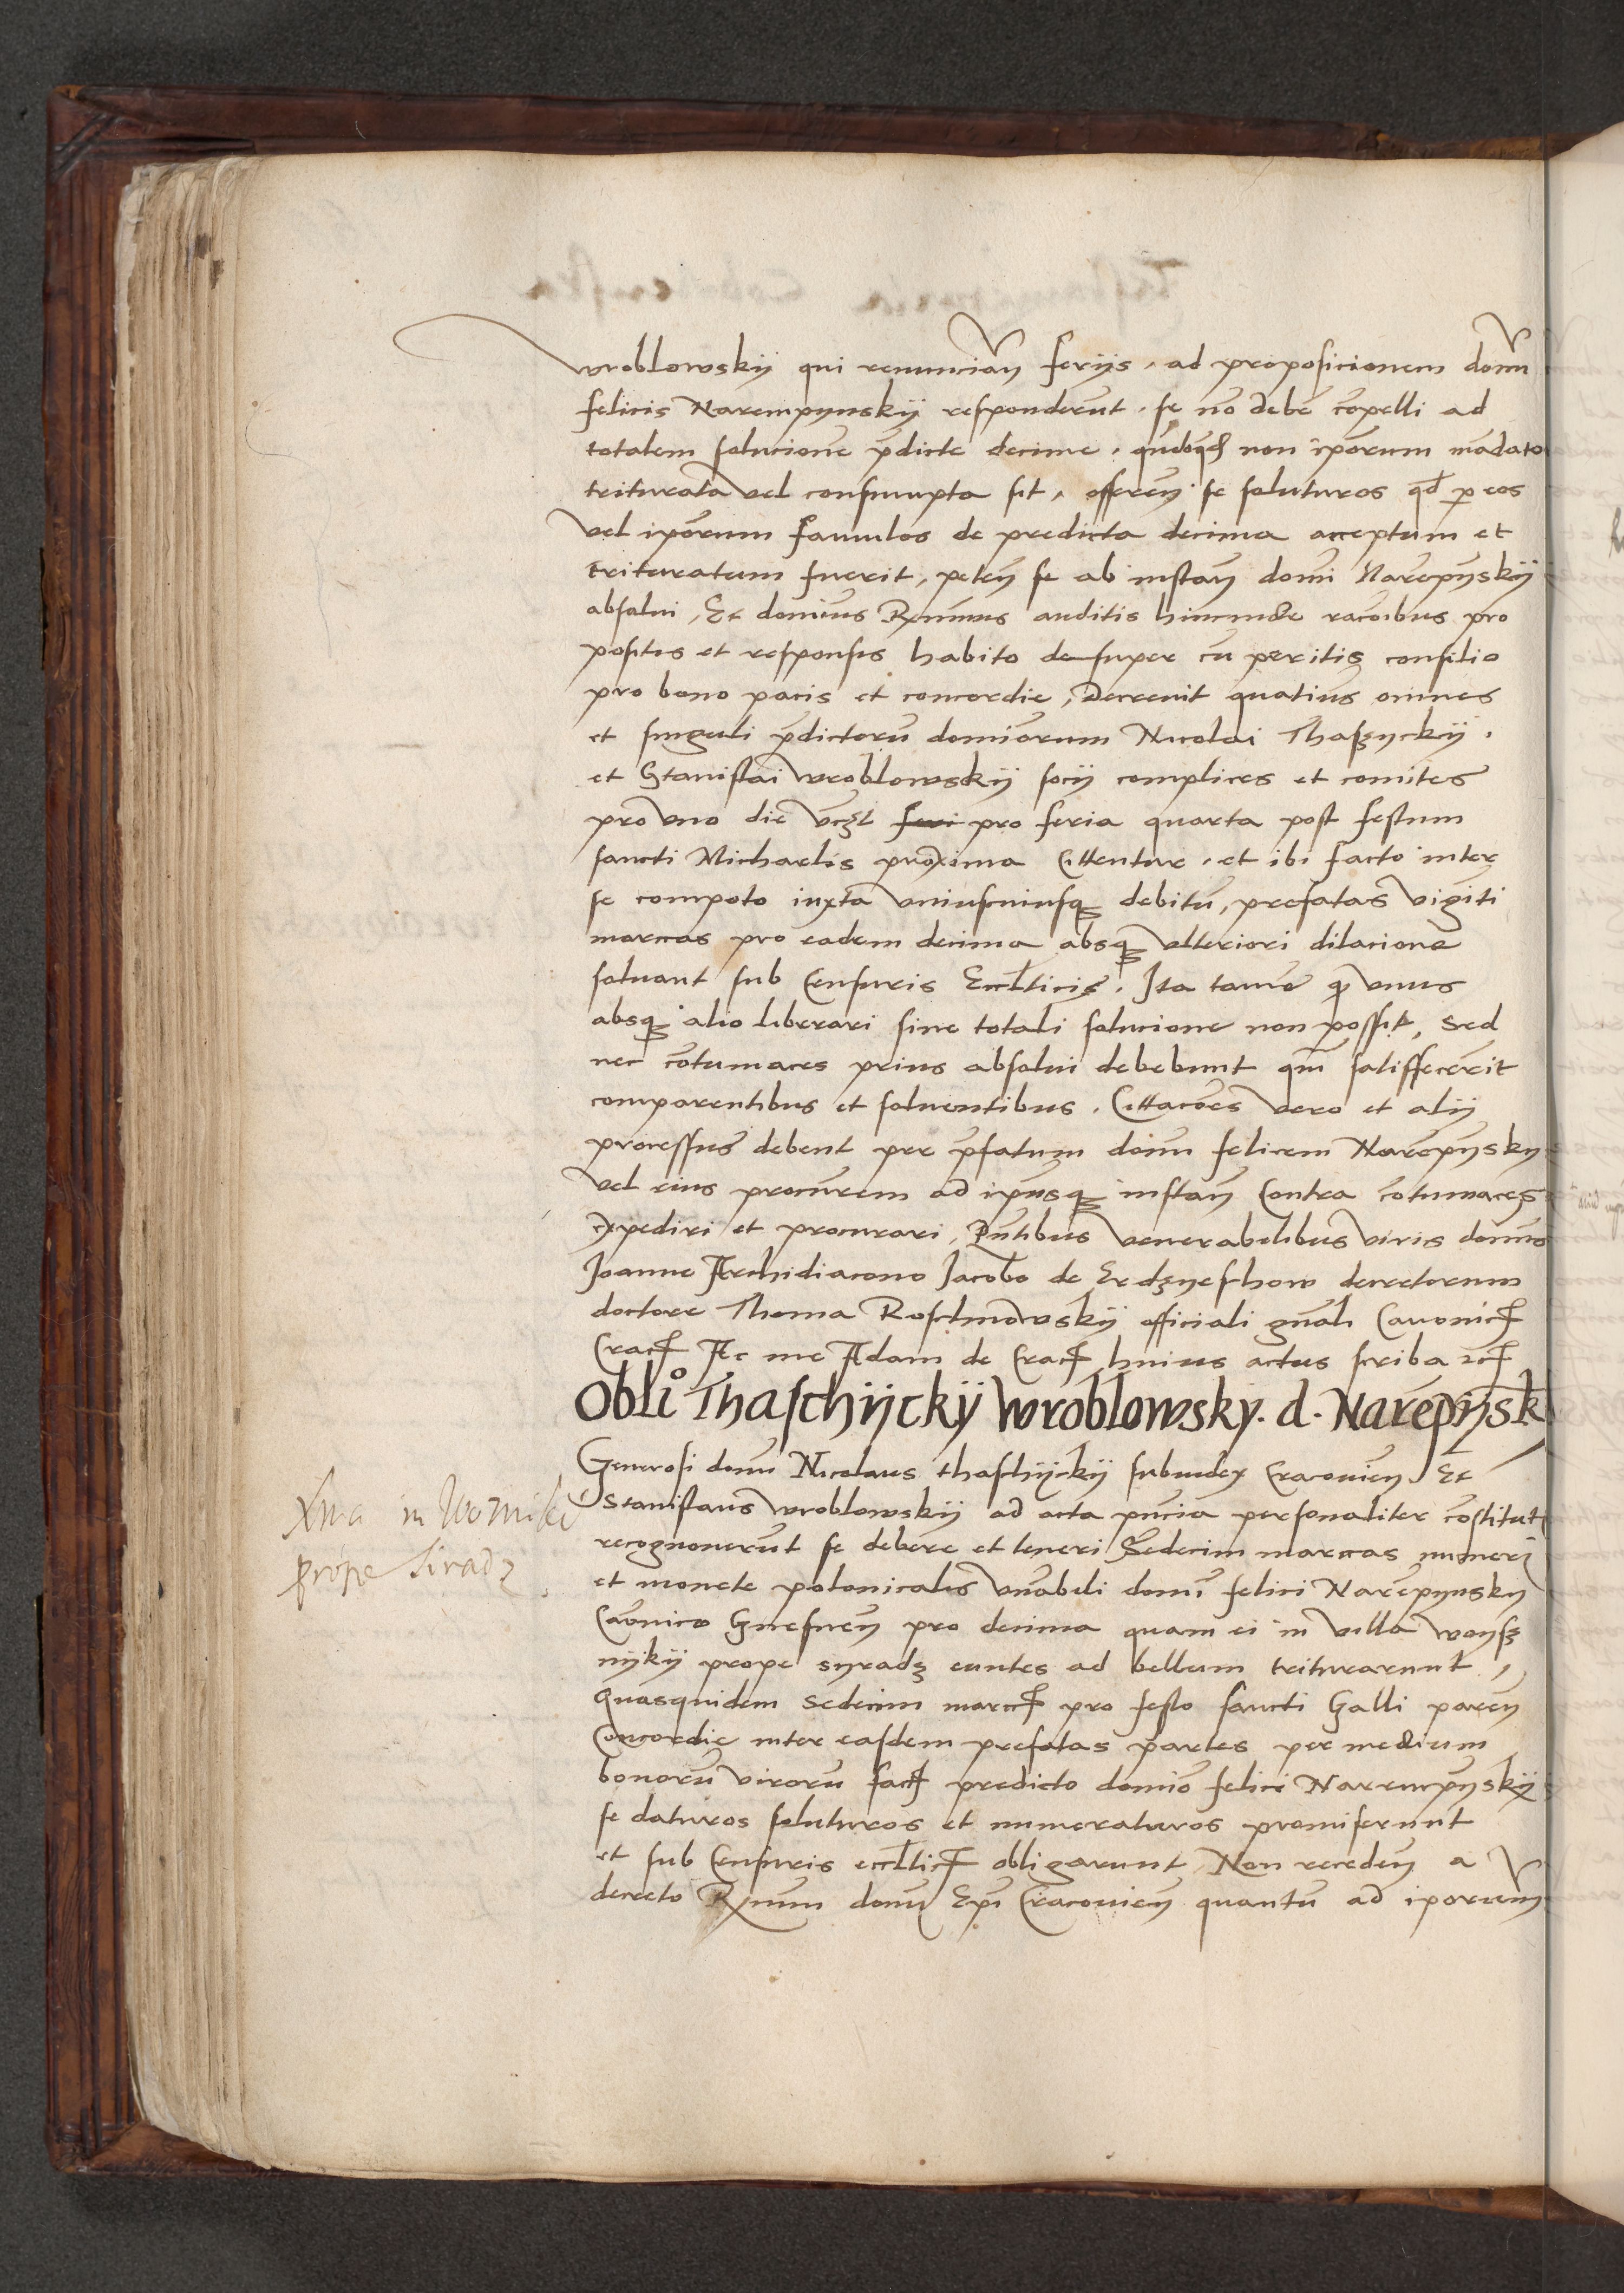 wroblowskÿ qui renuncian̄ ferÿs, ad proposicionem domī
felicis Narempynskÿ responderūt, se nō debē cōpelli ad
totalem solucionē p̄dicte decime, non ip̄orum mādato
triturata vel consumpta sit, offeren̄ se soluturos qd̄ p eos
vel ip̄orum famulos de predicta decima acceptum et
trituratum fuerit, peten̄ se ab instan̄ domī Narēpȳskÿ
absolui, Et domīus Rx̄mus auditis hincinde racōibus pro
positis et responsis habito desuper cū peritis consilio
pro bono pacis et concordie, Decreuit quatīus omnes
et singuli p̄dictorū domīorum Nicolai Thaszyckÿ.
et Stanislai wroblowskÿ socÿ complices et comites
pro vno die vcz̄t feri pro feria quarta post festum
sancti Michaelis proxima Cittentur, et ibi facto inter
se compoto iuxta vniuscuiusqꝫ debitū, prefatas vigīti
marcas pro eadem decima absqꝫ vlteriori dilacione
soluant sub Censuris Eccl̄ticis. Ita tamē ꝙ vnus
absqꝫ alio liberari sine totali solucione non possit, Sed
nec cōtumaces prius absolui debebunt qm̄ satisfecerīt
comparentibus et soluentibus. Cittacōes vero et alÿ
processus debent per p̄fatum domī felicem Narēpȳsky
vel eius procurem ad ip̄iusqꝫ instan̄ Contra cōtumaces
expediri et procurari, Pn̄tibus venerabilibus viris domīs
Joanne Archidiacono Jacobo de Erdzyeschow decretorum
doctore Thoma Roschnowskÿ officiali gn̄ali Canonicꝭ
Cracꝭ Ac me Adam de Cracꝭ huius actus scriba ꝛcꝭ
Oblı̊ Thaschÿckÿ wroblowsky. d. Narēpȳsk
Generosi domī Nicolaus thaschÿckÿ subiudex Cracouien̄ Et
Stanislaus wroblowskÿ ad acta pn̄cia personaliter cōstituti
recognouerūt se debere et teneri Sedecim marcas numeri
et monete polonicalis vn̄abili domī felici Narēpynsky
Canōnico Gnesnen̄ pro decima quam ei in villa woysz
nÿkÿ prope syradz euntes ad bellum triturarunt,
Quasquidem Sedecim marcꝭ pro festo sancti Galli
Concordie inter easdem prefatas partes per medium
bonorū virorū factꝭ predicto domīo felici Naremp̄yskÿ
se daturos soluturos et numeraturos promiserunt
et sub Censuris eccl̄ticꝭ obligarunt, Non receden̄ a
decreto Rx̄mi domī Ep̄i Cracouien̄ quantū ad ip̄orum
Xma in Wo
prope Siradz